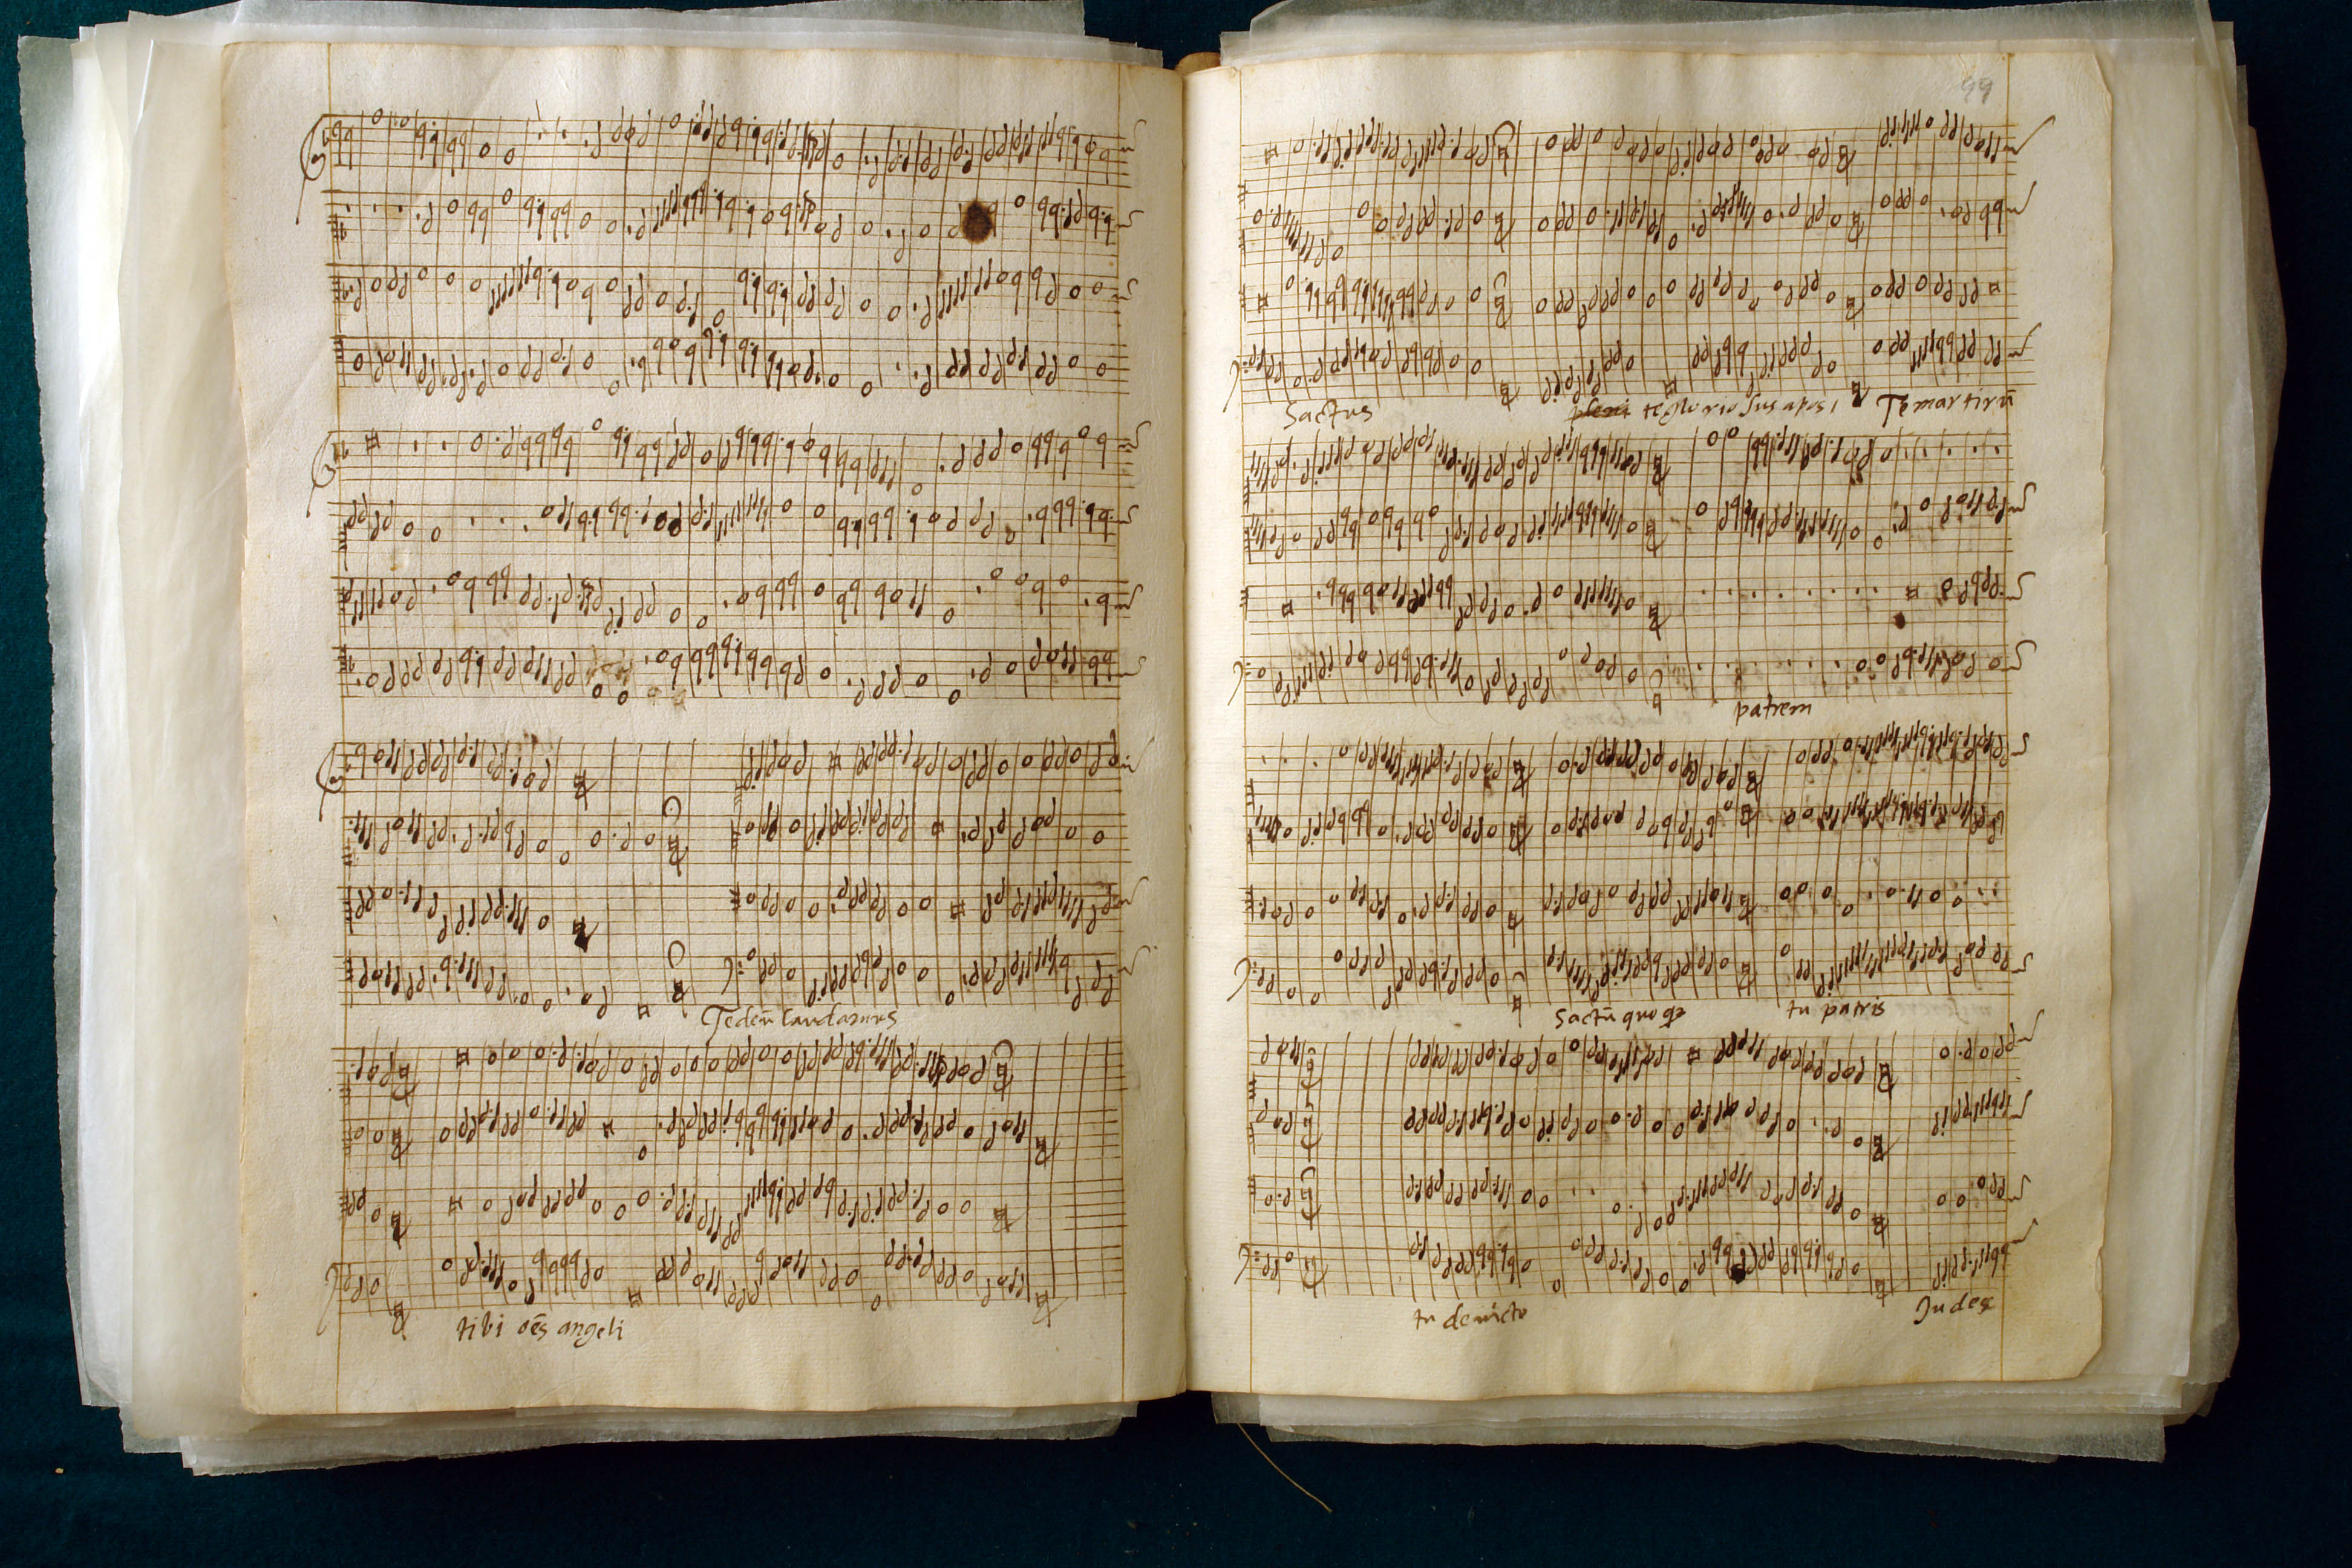 Tedeū laudamus
tibi oēs angeli
99
Sactus pleni te gloriosus apos Te martirū
patrem
Sactū quoqȝ tu patris
tu devicto Judex